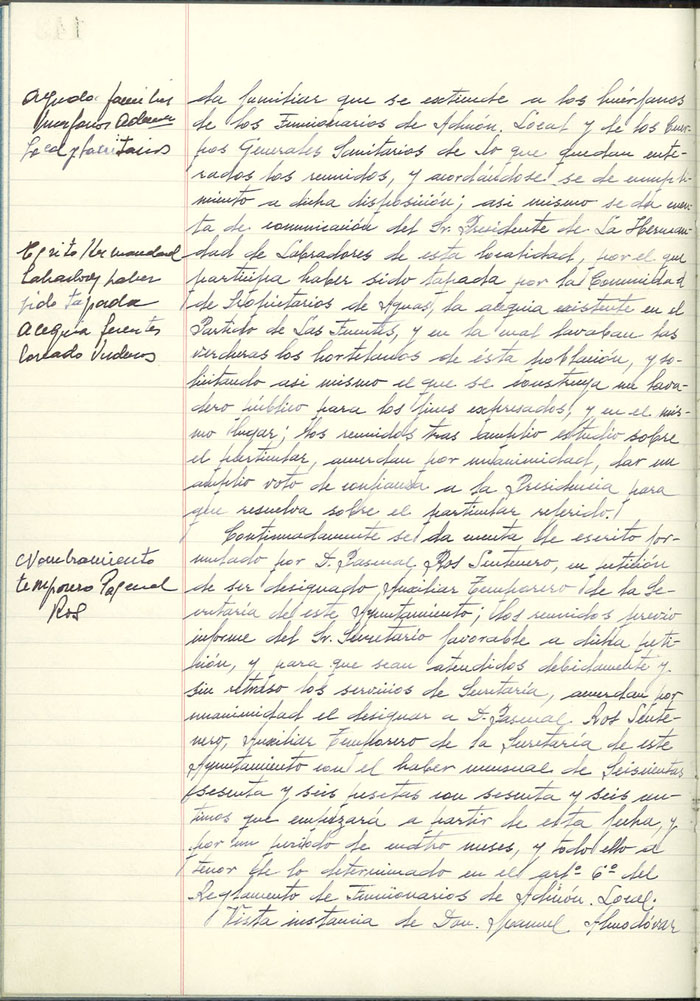 Ayuda familiar
huérfanos Admón
Local y Sanitarios
da familiar que se extiende a los huérfanos
de los Funcionarios de Admón. Local y de los Cuer-
pos Generales Sanitarios de lo que quedan ente-
rados los reunidos, y acordándose se de cumpli-
miento a dicha disposición; asi mismo se da cuen-
ta de comunicación del Sr. Presidente de La Herman-
Escrito Hermandad
Labradores haber
sido tapada
Acequia fuentes
lavado Verduras
dad de Labradores de esta localidad, por el que
participa haber sido tapada por la Comunidad
de Propietarios de Aguas, la acequia existente en el
Partido de Las Fuentes, y en la cual lavaban las
verduras los hortelanos de esta población, y so-
licitando asi mismo el que se construya un lava-
dero público para los fines expresados, y en el mis-
mo lugar; los reunidos tras amplio estudio sobre
el particular, acuerdan por unanimidad, dar un
amplio voto de confianza a la Presidencia para
que resuelva sobre el particular referido.
Nombramiento
temporero Pascual
Ros
Continuadamente se da cuenta de escrito for-
mulado por D. Pascual Ros Sentenero, en petición
de ser designado Auxiliar Temporero de la Se-
cretaría de este Ayuntamiento; los reunidos previo
informe del Sr. Secretario favorable a dicha peti-
ción, y para que sean atendidos debidamente y
sin retraso los servicios de Secretaría, acuerdan por
unanimidad el designar a D. Pascual Ros Sente-
nero, Auxiliar Temporero de la Secretaría de este
Ayuntamiento con el haber mensual de Seiscientas
sesenta y seis pesetas con sesenta y seis cen-
timos que empezará a partir de esta fecha, y
por un período de cuatro meses, y todo ello a
tenor de lo determinado en el artº 6º del
Reglamento de Funcionarios de Admón. Local.
Vista instancia de Don. Manuel Almodóvar